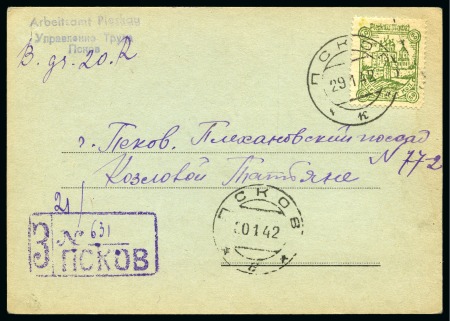 Arbeitsamt Pleskau
Управление Труда
Псков
В. гл. 20. 2
ПСКОВ
29 1 42
к
г. Псков. Плехановский посад
N 77-2
Козловой Татьяне
З
№ 631
ПСКОВ
ПСКОВ
30 1 42